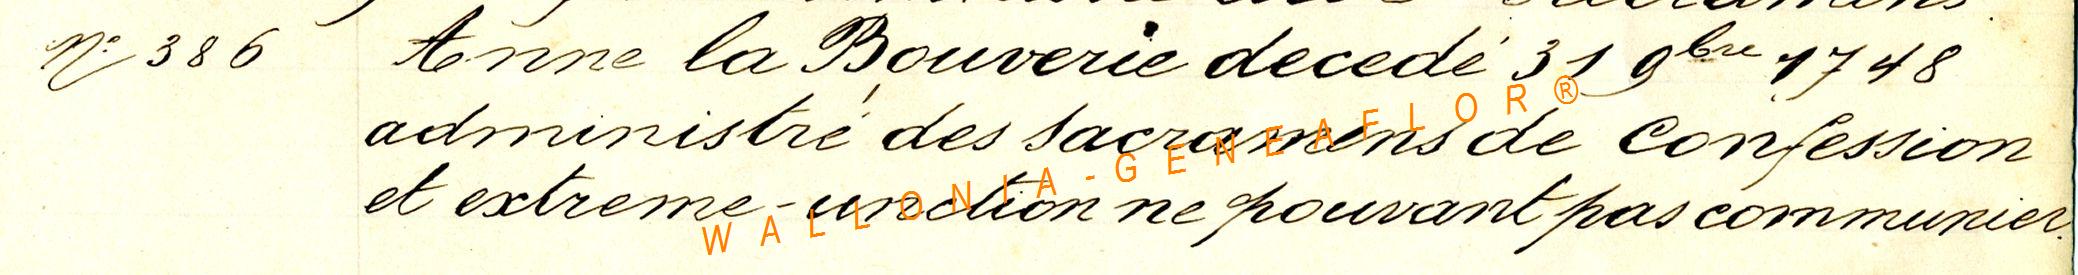 N° 386 Anne la Bouverie decedé 31 9bre 1748
administré des sacramens de Confession
et extreme-unction ne pouvant pas communier.
WALLONIA-GENEAFLOR®